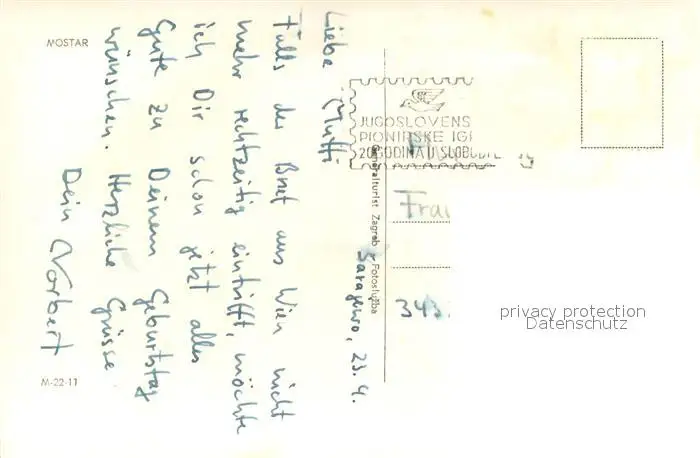 MOSTAR
Sarajewo, 23. 4.
Liebe Mutti
Falls der Brief aus Wien nicht
mehr rechtzeitig eintrifft, möchte
ich Dir schon jetzt alles
Gute zu Deinem Geburtstag
wünschen. Herzliche Grüsse
Dein Norbert
M-22-11
Generalturist Zagreb Fotoslužba
JUGOSLOVENS
PIONIRSKE IGR
20 GODINA U SLOBODI
Frau
343
privacy protection
Datenschutz